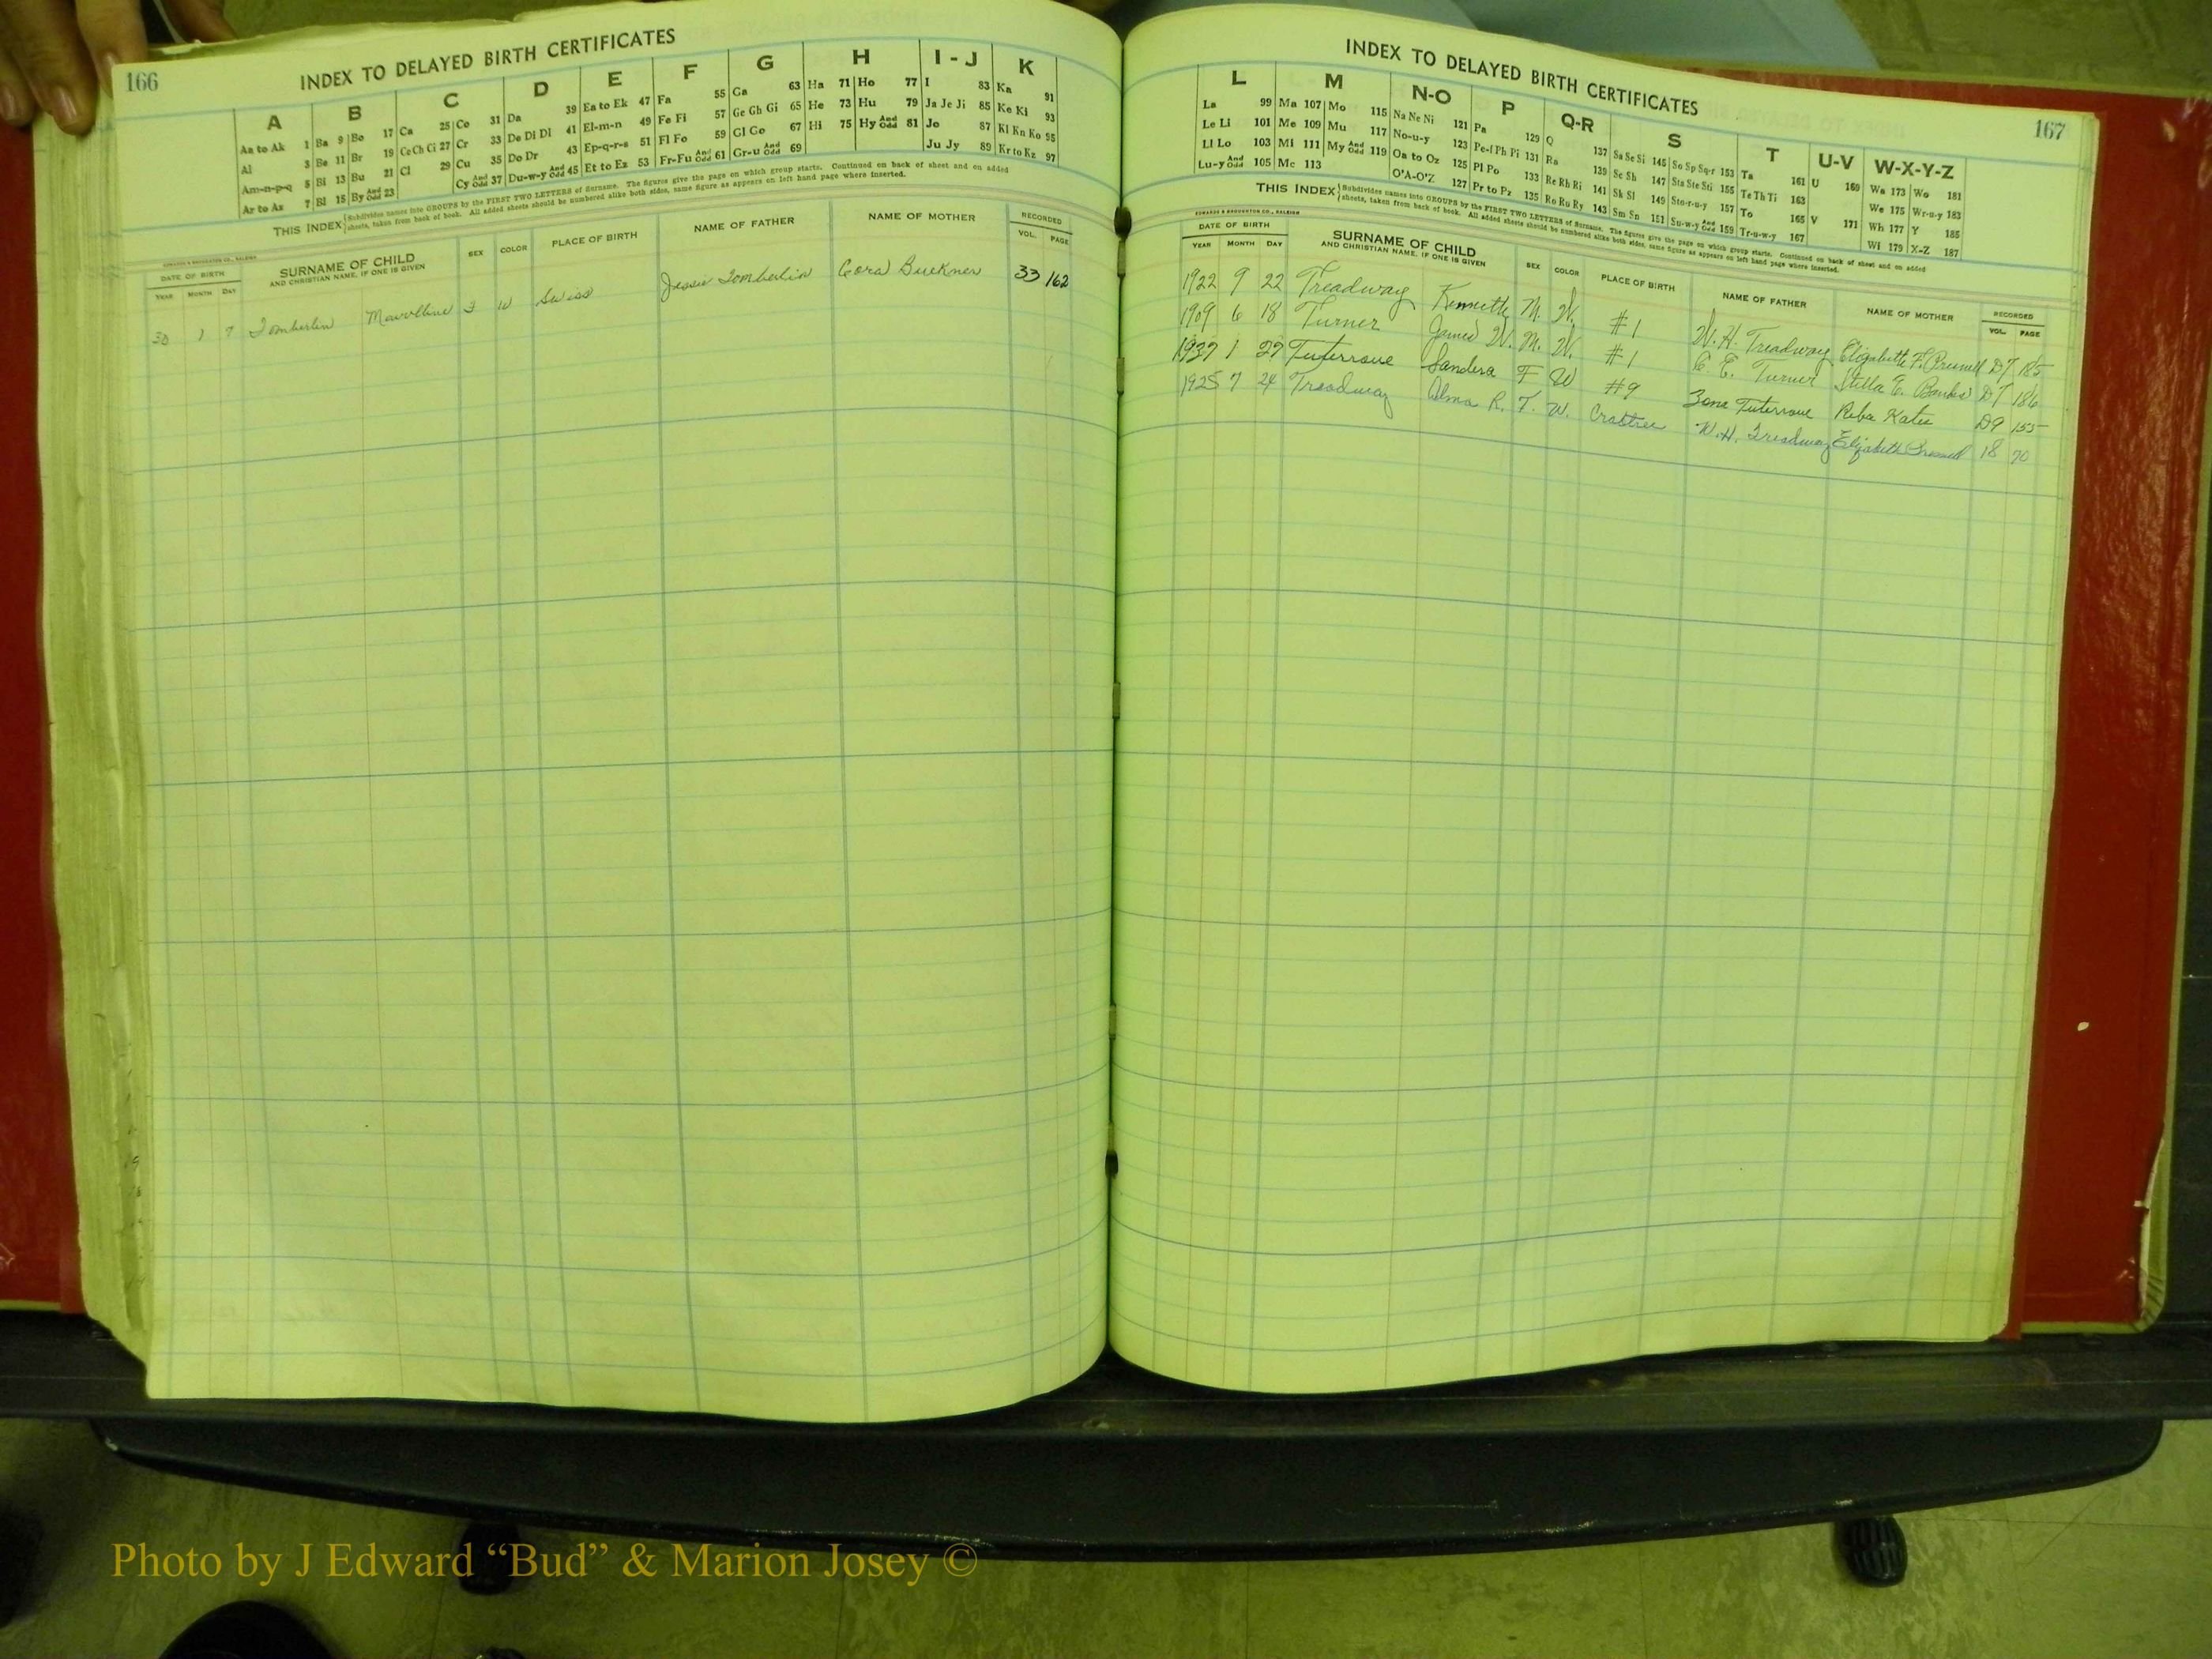 166
INDEX TO DELAYED BIRTH CERTIFICATES
A B C D E F G H I-J K
Aa to Ak 1 Ba 9 Bo 17 Ca 25 Co 31 Da 39 Ea to Ek 47 Fa 55 Ga 63 Ha 71 Ho 77 I 83 Ka 91
Al 3 Be 11 Br 19 Ce Ch Ci 27 Cr 33 De Di Dl 41 El-m-n 49 Fe Fi 57 Ge Gh Gi 65 He 73 Hu 79 Ja Je Ji 85 Ke Ki 93
Am-n-p-q 5 Bi 13 Bu 21 Cl 29 Cu 35 Do Dr 43 Ep-q-r-s 51 Fl Fo 59 Gl Go 67 Hi 75 Hy And Odd 81 Jo 87 Kl Kn Ko 95
Ar to Az 7 Bl 15 By And Odd 23 Cy And Odd 37 Du-w-y And Odd 45 Et to Ez 53 Fr-Fu And Odd 61 Gr-u And Odd 69 Ju Jy 89 Kr to Kz 97
THIS INDEX Subdivides names into GROUPS by the FIRST TWO LETTERS of Surname. The figures give the page on which group starts. Continued on back of sheet and on added
sheets, taken from back of book. All added sheets should be numbered alike both sides, same figure as appears on left hand page where inserted.
EDWARDS & BROUGHTON CO., RALEIGH
DATE OF BIRTH SURNAME OF CHILD SEX COLOR PLACE OF BIRTH NAME OF FATHER NAME OF MOTHER RECORDED
YEAR MONTH DAY AND CHRISTIAN NAME, IF ONE IS GIVEN VOL. PAGE
30 1 7 Tomberlin W Swiss Jessie Tomberlin Cora Buckner 33 162
INDEX TO DELAYED BIRTH CERTIFICATES
167
L M N-O P Q-R S T U-V W-X-Y-Z
La 99 Ma 107 Mo 115 Na Ne Ni 121 Pa 129 Q 137 Sa Se Si 145 So Sp Sq-r 153 Ta 161 U 169 Wa 173 Wo 181
Le Li 101 Me 109 Mu 117 No-u-y 123 Pe-f Ph Pi 131 Ra 139 Sc Sh 147 Sta Ste Sti 155 Te Th Ti 163 V 171 We 175 Wr-u-y 183
Ll Lo 103 Mi 111 My And Odd 119 Oa to Oz 125 Pl Po 133 Re Rh Ri 141 Sk Sl 149 Sto-r-u-y 157 To 165 Wh 177 Y 185
Lu-y And Odd 105 Mc 113 O'A-O'Z 127 Pr to Pz 135 Ro Ru Ry 143 Sm Sn 151 Su-w-y And Odd 159 Tr-u-w-y 167 Wi 179 X-Z 187
THIS INDEX Subdivides names into GROUPS by the FIRST TWO LETTERS of Surname. The figures give the page on which group starts. Continued on back of sheet and on added
sheets, taken from back of book. All added sheets should be numbered alike both sides, same figure as appears on left hand page where inserted.
EDWARDS & BROUGHTON CO., RALEIGH
DATE OF BIRTH SURNAME OF CHILD SEX COLOR PLACE OF BIRTH NAME OF FATHER NAME OF MOTHER RECORDED
YEAR MONTH DAY AND CHRISTIAN NAME, IF ONE IS GIVEN VOL. PAGE
1922 9 22 Treadway Kenneth M. W. #1 W. H. Treadway Elizabeth F. D7 185
1909 6 18 Turner James W. M. W. #1 C. E. Turner Stella E. Banks D7 186
1937 1 27 Tuterrow Sandera F W #9 Zone Tuterrow Reba Kates D9 155
1925 7 24 Treadway Alma R. F. W. Crabtree W. H. Treadway Elizabeth 18 70
Photo by J Edward “Bud” & Marion Josey ©